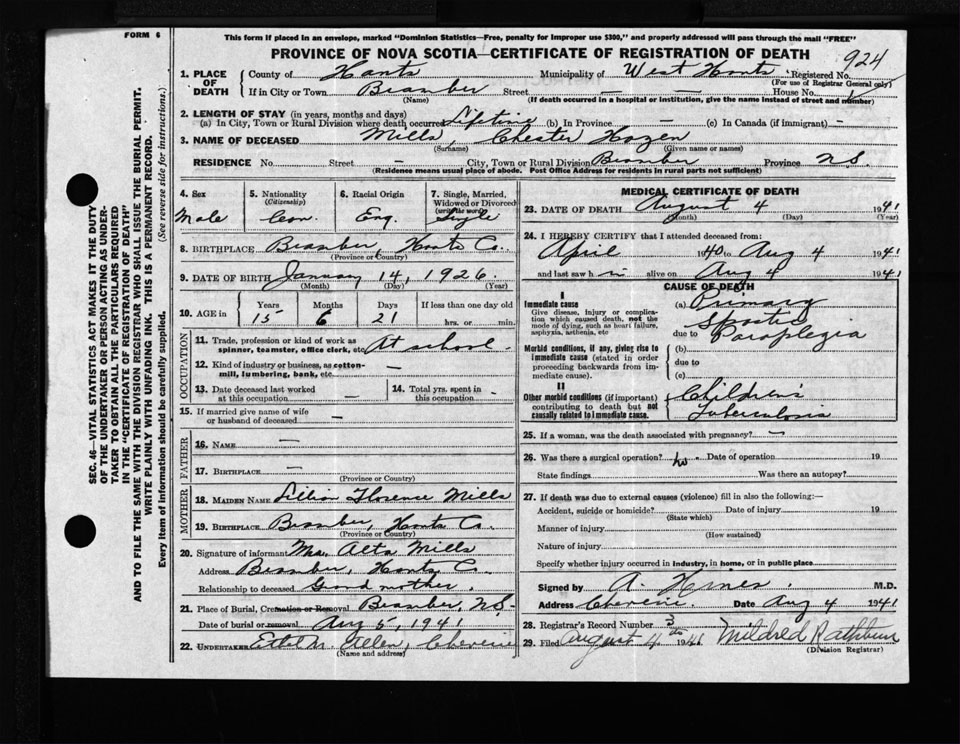 FORM 6
This form if placed in an envelope, marked "Dominion Statistics—Free, penalty for improper use $300," and properly addressed will pass through the mail "FREE"
PROVINCE OF NOVA SCOTIA—CERTIFICATE OF REGISTRATION OF DEATH
924
1. PLACE OF DEATH
County of Hants Municipality of West Hants Registered No.
(For use of Registrar General only)
If in City or Town Bramber Street — — House No.
(Name) (If death occurred in a hospital or institution, give the name instead of street and number)
2. LENGTH OF STAY (in years, months and days)
(a) In City, Town or Rural Division where death occurred Lifetime (b) In Province — (c) In Canada (if immigrant) —
3. NAME OF DECEASED Mills, Chester Hazen
(Surname) (Given name or names)
RESIDENCE No. Street — City, Town or Rural Division Bramber Province N.S.
(Residence means usual place of abode. Post Office Address for residents in rural parts not sufficient)
4. Sex
Male
5. Nationality
(Citizenship)
Can.
6. Racial Origin
Eng.
7. Single, Married, Widowed or Divorced
(write the word)
Single
8. BIRTHPLACE Bramber, Hants Co.
(Province or Country)
9. DATE OF BIRTH January 14, 1926
(Month) (Day) (Year)
10. AGE in
Years Months Days If less than one day old
15 6 21 hrs. or min.
OCCUPATION
11. Trade, profession or kind of work as spinner, teamster, office clerk, etc. At school
12. Kind of industry or business, as cotton-mill, lumbering, bank, etc. —
13. Date deceased last worked at this occupation —
14. Total yrs. spent in this occupation —
15. If married give name of wife or husband of deceased —
FATHER
16. NAME —
17. BIRTHPLACE —
(Province or Country)
MOTHER
18. MAIDEN NAME Lillian Florence Mills
19. BIRTHPLACE Bramber, Hants Co.
(Province or Country)
20. Signature of informant Mrs. Alta Mills
Address Bramber, Hants Co.
Relationship to deceased Grandmother
21. Place of Burial, Cremation or Removal Bramber, N.S.
Date of burial or removal Aug 5, 1941
22. UNDERTAKER Ethel M. Allen, Cheverie
(Name and address)
MEDICAL CERTIFICATE OF DEATH
23. DATE OF DEATH August 4 1941
(Month) (Day) (Year)
24. I HEREBY CERTIFY that I attended deceased from:
April 1940 to Aug 4 1941
and last saw him alive on Aug 4 1941
CAUSE OF DEATH
I
Immediate cause
Give disease, injury or complication which caused death, not the mode of dying, such as heart failure, asphyxia, asthenia, etc
(a) Primary
Spastic
due to Paraplegia
Morbid conditions, if any, giving rise to immediate cause (stated in order proceeding backwards from immediate cause).
(b)
due to
(c)
II
Other morbid conditions (if important) contributing to death but not causally related to immediate cause.
Children's
Tuberculosis
25. If a woman, was the death associated with pregnancy? —
26. Was there a surgical operation? No Date of operation 19
State findings Was there an autopsy?
27. If death was due to external causes (violence) fill in also the following:—
Accident, suicide or homicide? Date of injury 19
(State which)
Manner of injury
(How sustained)
Nature of injury
Specify whether injury occurred in industry, in home, or in public place
Signed by A. Hines M.D.
Address Cheverie Date Aug 4 1941
28. Registrar's Record Number 3
29. Filed August 4th 1941 Mildred Rathbun
(Division Registrar)
SEC. 46—VITAL STATISTICS ACT MAKES IT THE DUTY
OF THE UNDERTAKER OR PERSON ACTING AS UNDER-
TAKER TO OBTAIN ALL THE PARTICULARS REQUIRED
IN THE "CERTIFICATE OF REGISTRATION OF DEATH"
AND TO FILE THE SAME WITH THE DIVISION REGISTRAR WHO SHALL ISSUE THE BURIAL PERMIT.
WRITE PLAINLY WITH UNFADING INK. THIS IS A PERMANENT RECORD.
Every item of information should be carefully supplied. (See reverse side for instructions.)